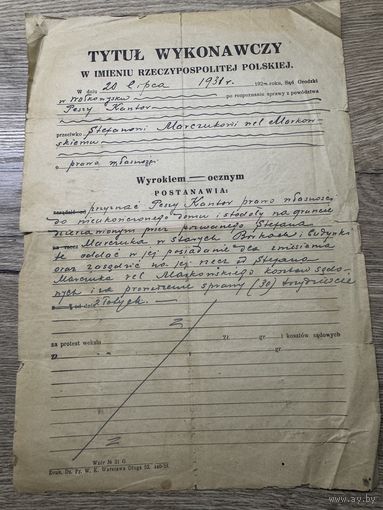 TYTUŁ WYKONAWCZY
W IMIENIU RZECZYPOSPOLITEJ POLSKIEJ.
W dniu 20 lipca 1931 r. 192 roku, Sąd Grodzki
w Wołkowysku po rozpoznaniu sprawy z powództwa
Peszy Kantor
przeciwko Stefanowi Marczukowi vel Markow-
skiemu
o prawo własności
Wyrokiem — ocznym
POSTANAWIA:
przyznać Peszy Kantor prawo własności
do nieukończonego domu i stodoły na gruncie
przez pozwanego Stefana
Marczuka w Starych budynki
te oddać w jej posiadanie dla zniesienia
oraz zasądzić na jej rzecz od Stefana
Marczuka vel Markowskiego kosztów sądo-
wych i za prowadzenie sprawy (30) trzydzieści
złotych.
za protest wekslu zł. gr. i kosztów sądowych
zł. gr.
Wzór № 31 G.
Druk. Dz. Pr. W. K. Warszawa Długa 52.
ay.by